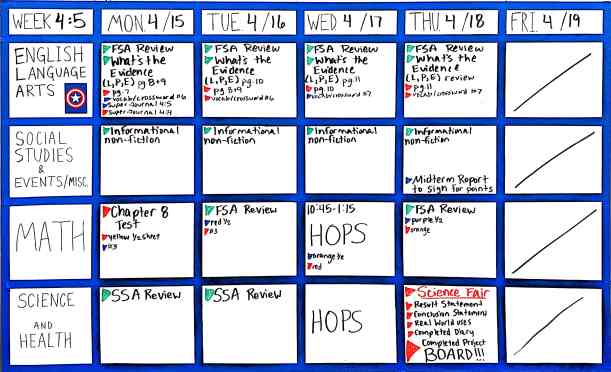 WEEK 4:5
MON. 4/15
TUE. 4/16
WED 4/17
THU. 4/18
FRI. 4/19
ENGLISH
LANGUAGE
ARTS
FSA Review
What's the
Evidence
(L,P,E) pg 8+9
pg. 7
vocab/crossword #6
Super Journal 4:5
Super Journal 4:4
FSA Review
What's the
Evidence
(L,P,E) pg. 10
pg 8+9
vocab/crossword #6
FSA Review
What's the
Evidence
(L,P,E) pg. 11
pg. 10
vocab/crossword #7
FSA Review
What's the
Evidence
(L,P,E) review
pg. 11
vocab/crossword #7
SOCIAL
STUDIES
&
EVENTS/MISC.
Informational
non-fiction
Informational
non-fiction
Informational
non-fiction
Informational
non-fiction
Midterm Report
to sign for points
MATH
Chapter 8
Test
yellow 1/2 sheet
#3
FSA Review
red 1/2
#3
10:45-1:15
HOPS
orange 1/2
red
FSA Review
purple 1/2
orange
SCIENCE
AND
HEALTH
SSA Review
SSA Review
HOPS
Science Fair
Result Statement
Conclusion Statement
Real World uses
Completed Diary
Completed Project
BOARD!!!